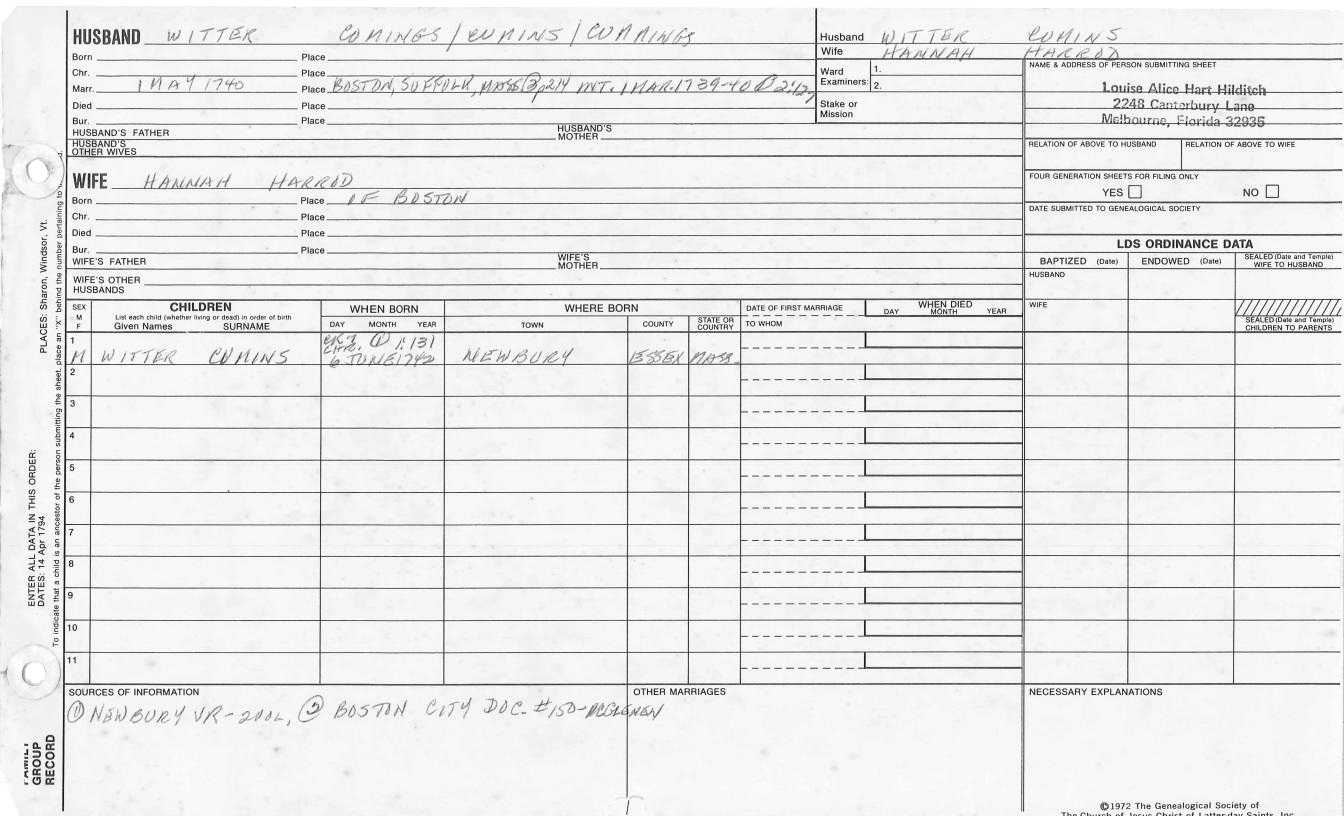 HUSBAND WITTER COMINGS / CUMINS / CUMMINGS
Born Place
Chr. Place
Marr. 1 MAY 1740 Place BOSTON, SUFFOLK, MASS p214 INT. 1 MAR. 1739-40
Died Place
Bur. Place
HUSBAND'S FATHER HUSBAND'S MOTHER
HUSBAND'S OTHER WIVES
Husband WITTER CUMINS
Wife HANNAH HARROD
Ward Examiners: 1.
2.
Stake or Mission
NAME & ADDRESS OF PERSON SUBMITTING SHEET
Louise Alice Hart Hilditch
2248 Canterbury Lane
Melbourne, Florida 32935
RELATION OF ABOVE TO HUSBAND RELATION OF ABOVE TO WIFE
FOUR GENERATION SHEETS FOR FILING ONLY
YES NO
DATE SUBMITTED TO GENEALOGICAL SOCIETY
WIFE HANNAH HARROD
Born Place OF BOSTON
Chr. Place
Died Place
Bur. Place
WIFE'S FATHER WIFE'S MOTHER
WIFE'S OTHER HUSBANDS
LDS ORDINANCE DATA
BAPTIZED (Date) ENDOWED (Date) SEALED (Date and Temple) WIFE TO HUSBAND
HUSBAND
WIFE
SEALED (Date and Temple) CHILDREN TO PARENTS
SEX M F
CHILDREN
List each child (whether living or dead) in order of birth
Given Names SURNAME
WHEN BORN
DAY MONTH YEAR
WHERE BORN
TOWN COUNTY STATE OR COUNTRY
DATE OF FIRST MARRIAGE
TO WHOM
WHEN DIED
DAY MONTH YEAR
1
M WITTER CUMINS CHR. ① 1:131 6 JUNE 1742 NEWBURY ESSEX MASS.
2
3
4
5
6
7
8
9
10
11
SOURCES OF INFORMATION
① NEWBURY VR-200L, ② BOSTON CITY DOC. #150-MCGLENEN
OTHER MARRIAGES
NECESSARY EXPLANATIONS
PLACES: Sharon, Windsor, Vt.
ENTER ALL DATA IN THIS ORDER:
DATES: 14 Apr 1794
To indicate that a child is an ancestor of the person submitting the sheet, place an "X" behind the number pertaining to
FAMILY GROUP RECORD
©1972 The Genealogical Society of
The Church of Jesus Christ of Latter-day Saints, Inc.